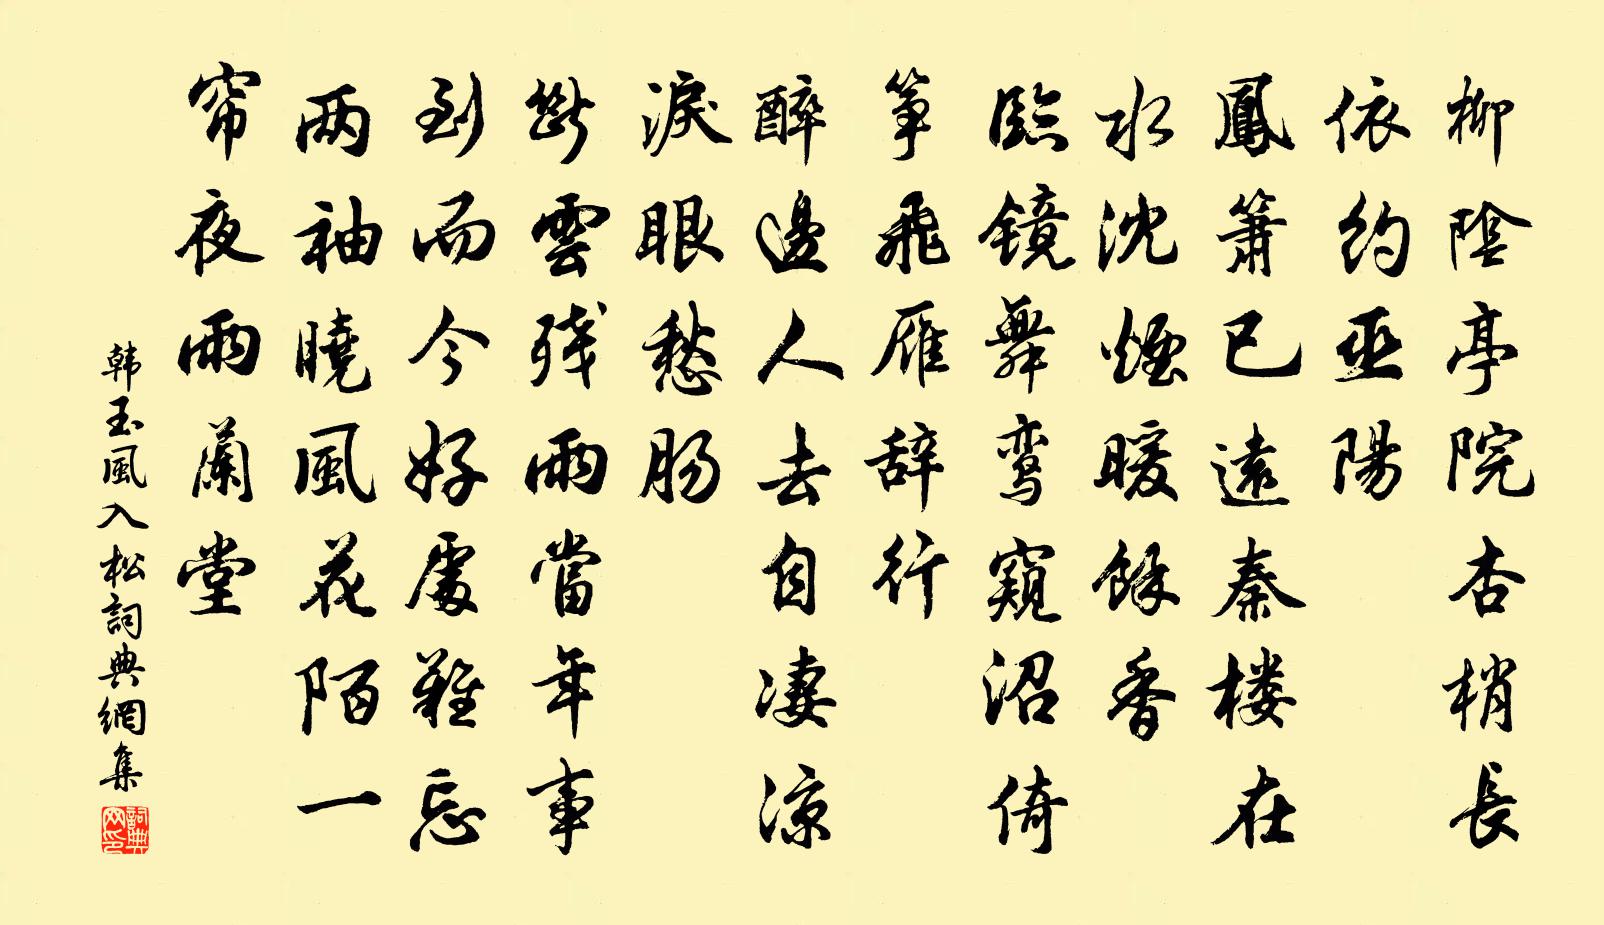 柳陰亭院杏梢長
依約巫陽
鳳簫已遠秦楼在
水沈煙暖餘香
臨镜舞鸾窺沼倚
筝飛雁辞行
醉邊人去自凄凉
淚眼愁肠
断雲残雨當年事
到而今好處难忘
两袖曉風花陌一
帘夜雨蘭堂
韩玉風入松詞典網集
詞典网印